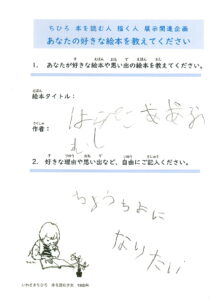 ちひろ 本を読む人 描く人 展示関連企画
あなたの好きな絵本を教えてください
1. あなたが好きな絵本や思い出の絵本を教えてください。
絵本タイトル：
はらぺこあおむし
作者：
2. 好きな理由や思い出など、ご自由にご記入ください。
ちょうちょに
なりたい
いわさきちひろ 本を読む少女 1969年